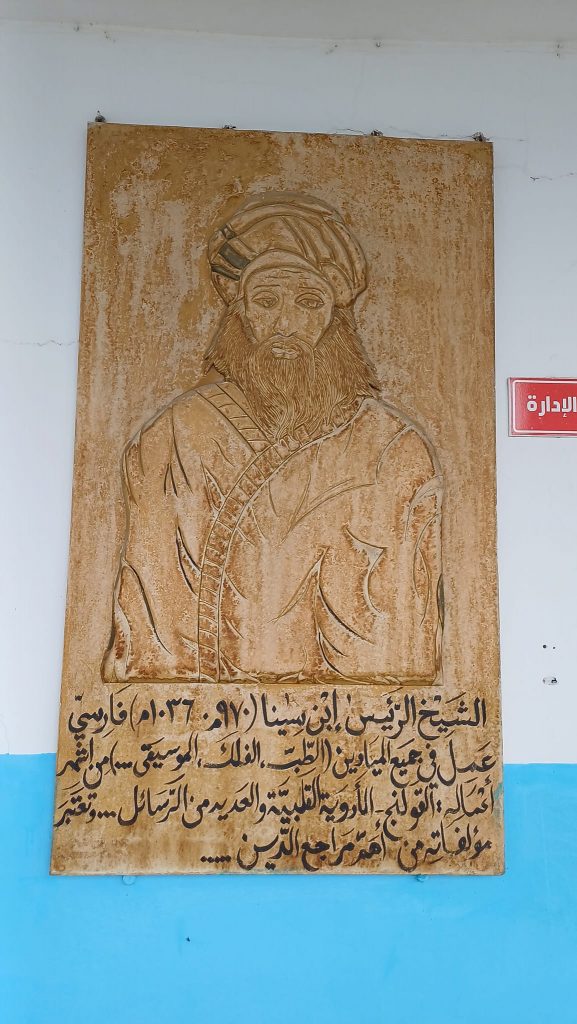 الشَيْخ الرَئِيسْ إِبْن سِينا (٩٧٠م. ١٠٣٦م) فَارِسِيّ
عَمِلَ فِي جَمِيعِ الميادين (الطّبّ، الفلك، الموسيقى ...) مِن أشهر
أعْمالِه: القولنج - الأدوية القَلبيّة والعديد من الرّسائل .... وتعتَبَر
مؤلفاتِه من أهمّ مَراجع الدّين .....
الإدارة